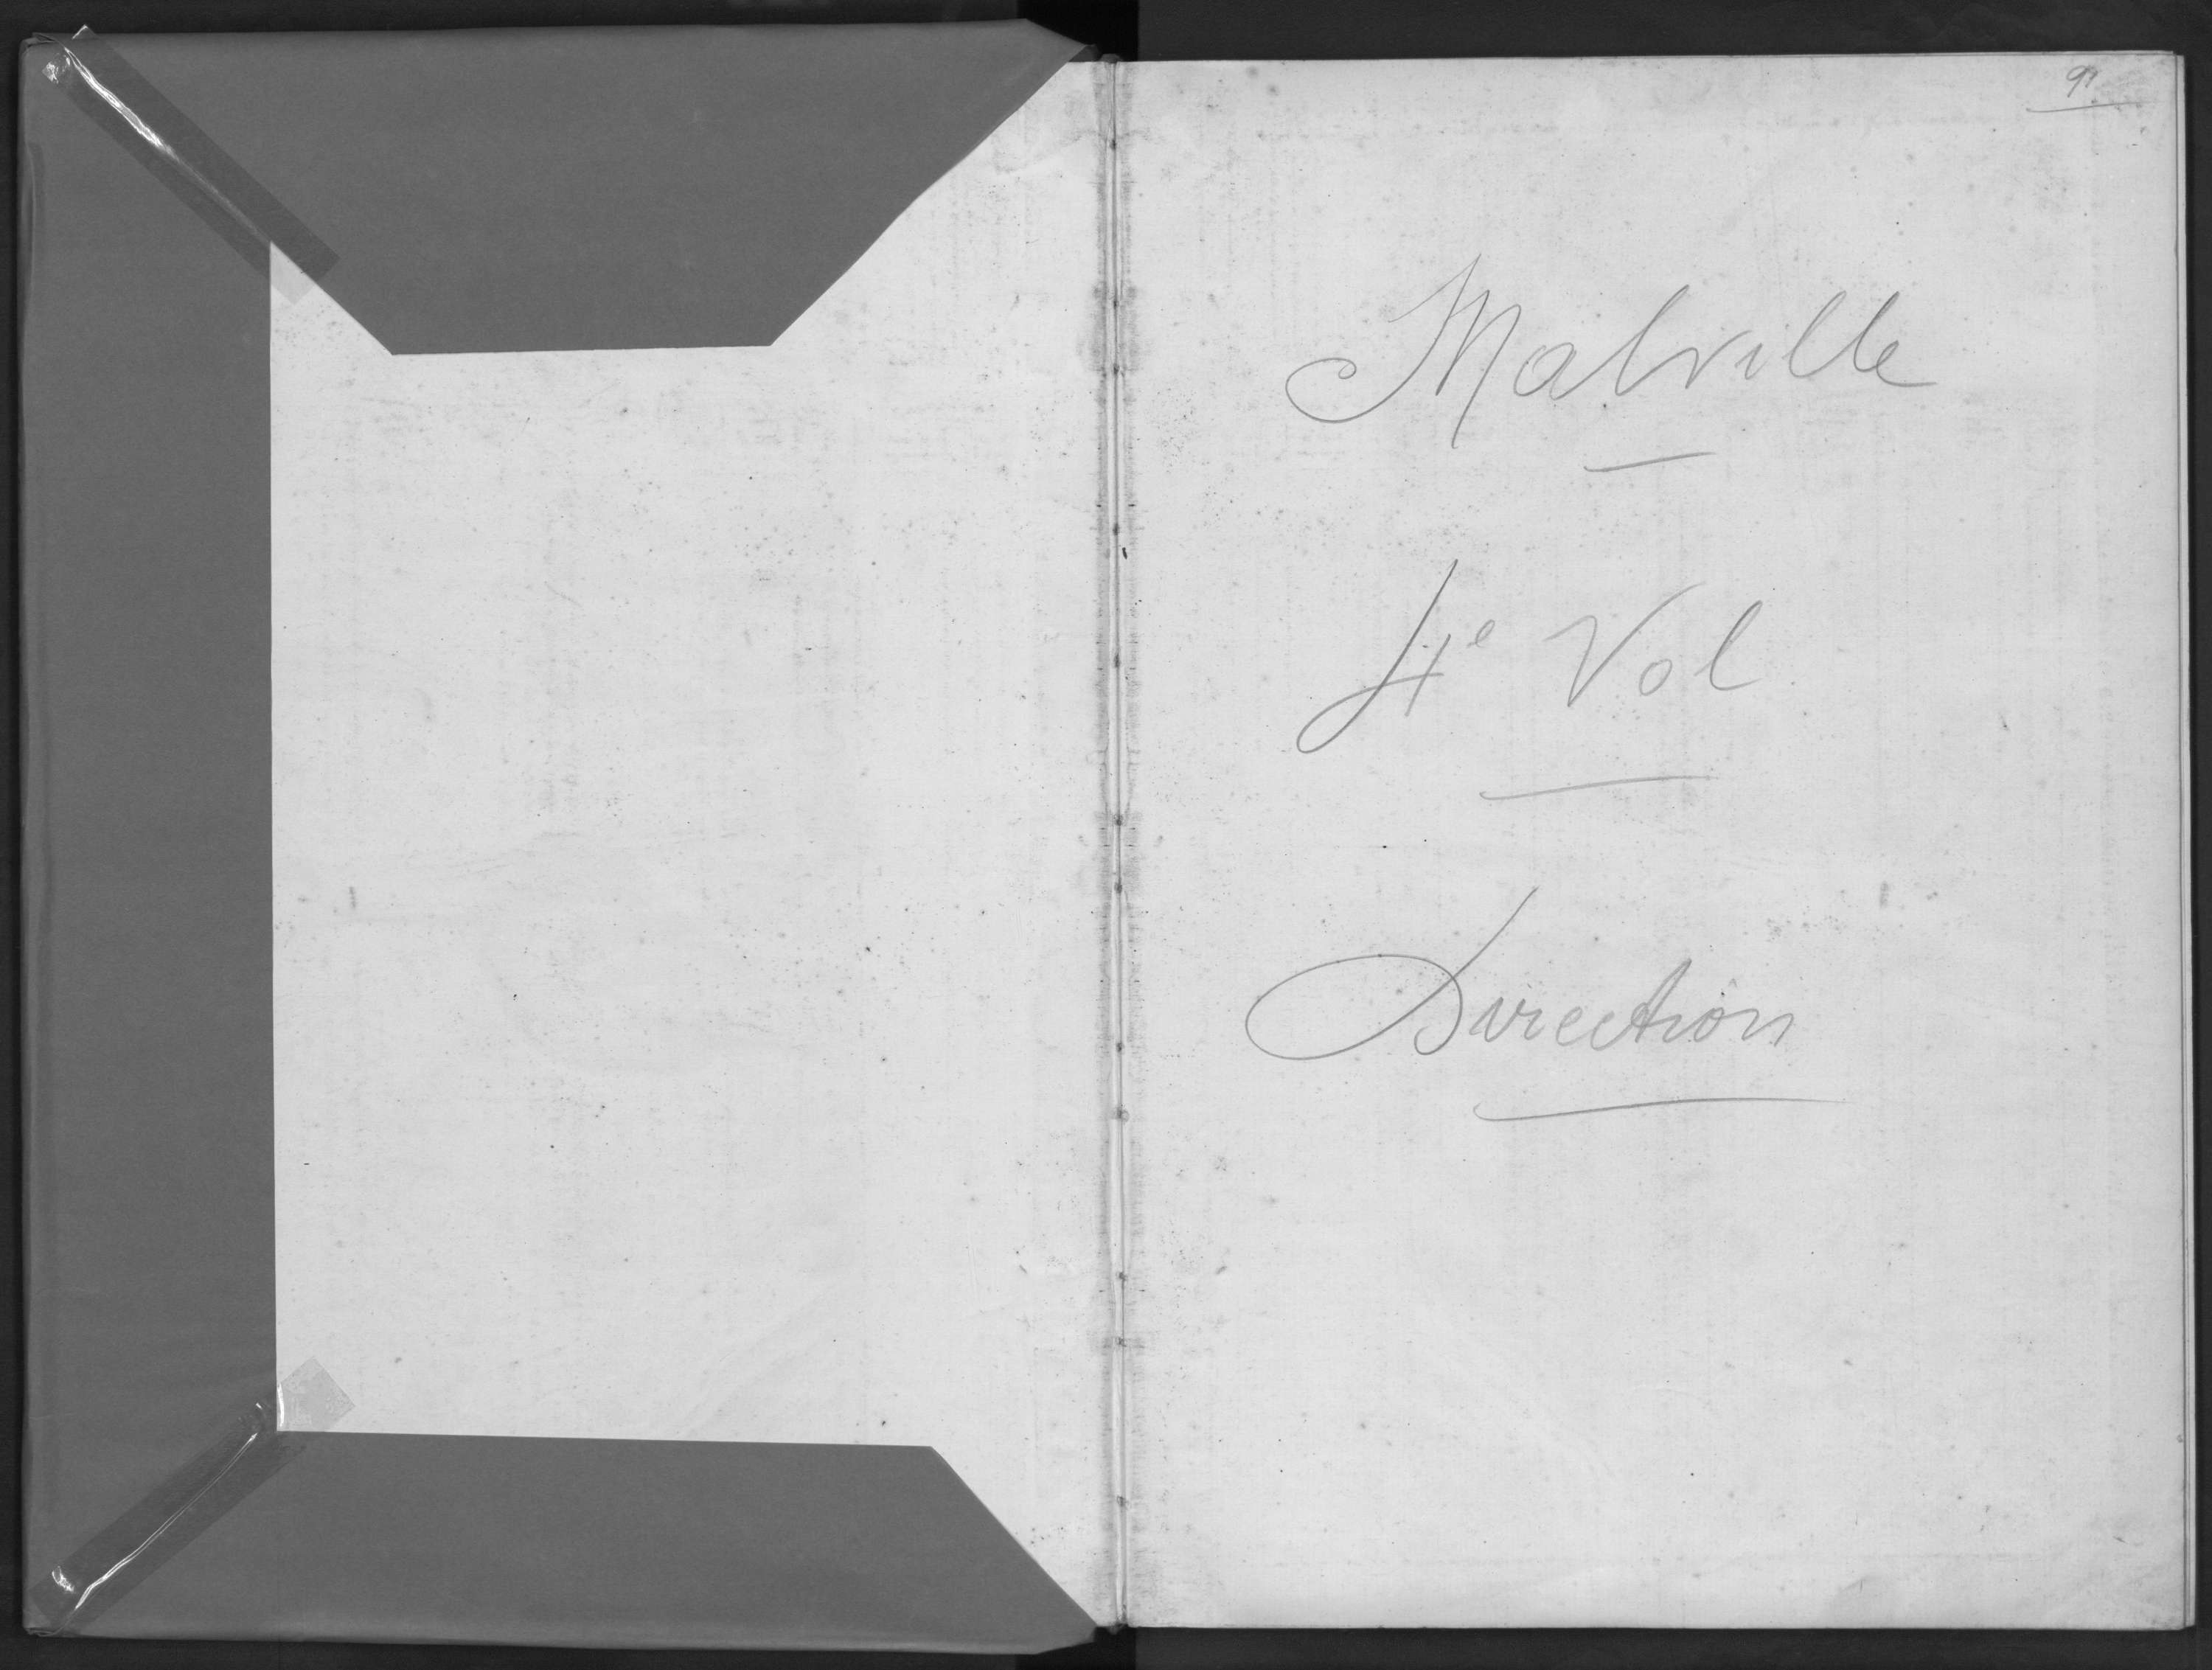 Malville
4e Vol
Direction